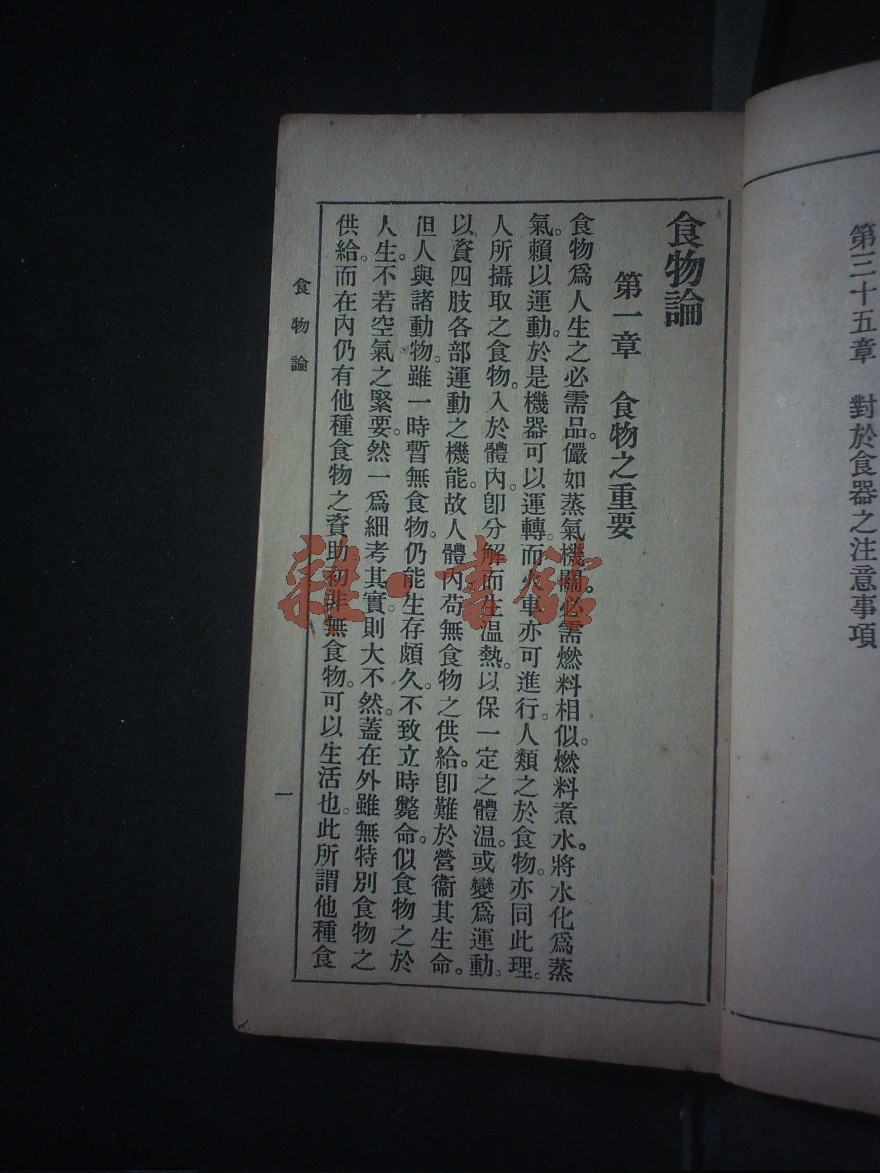 第三十五章 對於食器之注意事項
食物論
第一章 食物之重要
食物爲人生之必需品。儼如蒸氣機關。必需燃料相似。燃料煮水。將水化爲蒸
氣。賴以運動。於是機器可以運轉。而火車亦可進行。人類之於食物。亦同此理。
人所攝取之食物。入於體內。卽分解而生溫熱。以保一定之體溫。或變爲運動。
以資四肢各部運動之機能。故人體內苟無食物之供給。卽難於營衞其生命。
但人與諸動物。雖一時暫無食物。仍能生存頗久。不致立時斃命。似食物之於
人生。不若空氣之緊要。然一爲細考其實則大不然。蓋在外雖無特別食物之
供給。而在內仍有他種食物之資助。初非無食物。可以生活也。此所謂他種食
食物論
一
雜·書館